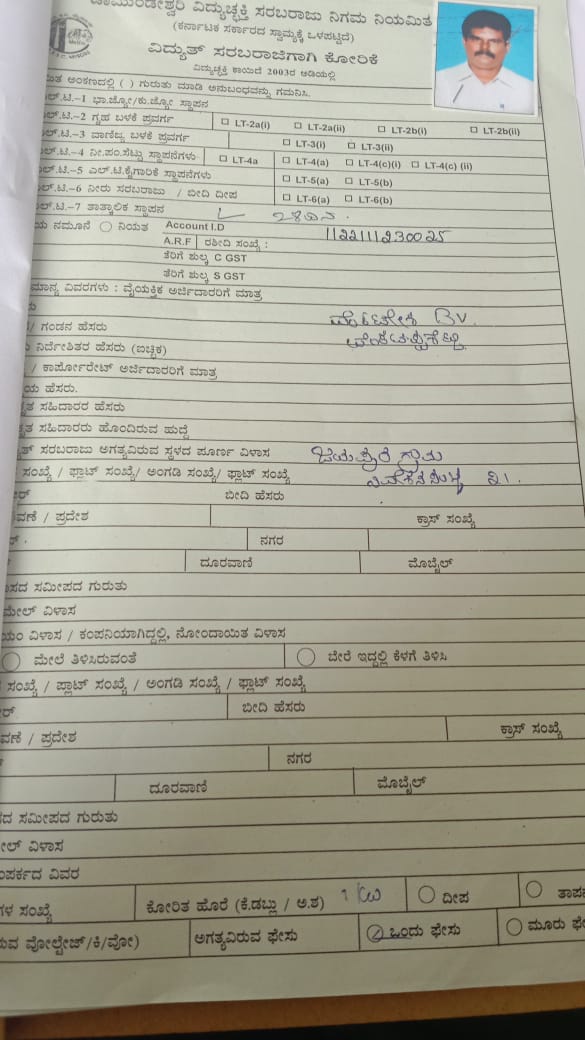 ವಿದ್ಯುಚ್ಛಕ್ತಿ ಸರಬರಾಜು ನಿಗಮ ನಿಯಮಿತ
(ಕರ್ನಾಟಕ ಸರ್ಕಾರದ ಸ್ವಾಮ್ಯಕ್ಕೆ ಒಳಪಟ್ಟಿದೆ)
ವಿದ್ಯುತ್ ಸರಬರಾಜಿಗಾಗಿ ಕೋರಿಕೆ
ವಿದ್ಯುಚ್ಛಕ್ತಿ ಕಾಯಿದೆ 2003ರ ಅಡಿಯಲ್ಲಿ
ಅಂಕಣದಲ್ಲಿ ( ) ಗುರುತು ಮಾಡಿ ಅನುಬಂಧವನ್ನು ಗಮನಿಸಿ.
ಲ್.ಟಿ.–1 ಭಾ.ಜ್ಯೋ/ಕು.ಜ್ಯೋ ಸ್ಥಾಪನ
ಲ್.ಟಿ.–2 ಗೃಹ ಬಳಕೆ ಪ್ರವರ್ಗ □ LT-2a(i) □ LT-2a(ii) □ LT-2b(i) □ LT-2b(ii)
ಲ್.ಟಿ.–3 ವಾಣಿಜ್ಯ ಬಳಕೆ ಪ್ರವರ್ಗ □ LT-3(i) □ LT-3(ii)
ಲ್.ಟಿ.–4 ನೀ.ಪಂ.ಸೆಟ್ಟು ಸ್ಥಾಪನೆಗಳು □ LT-4a □ LT-4(a) □ LT-4(c)(i) □ LT-4(c) (ii)
ಲ್.ಟಿ.–5 ಎಲ್.ಟಿ.ಕೈಗಾರಿಕೆ ಸ್ಥಾಪನೆಗಳು □ LT-5(a) □ LT-5(b)
ಲ್.ಟಿ.–6 ನೀರು ಸರಬರಾಜು / ಬೀದಿ ದೀಪ □ LT-6(a) □ LT-6(b)
ಲ್.ಟಿ.–7 ತಾತ್ಕಾಲಿಕ ಸ್ಥಾಪನ
ಯ ನಮೂನೆ ○ ನಿಯತ Account I.D
A.R.F ರಶೀದಿ ಸಂಖ್ಯೆ :
ತೆರಿಗೆ ಶುಲ್ಕ C GST
ತೆರಿಗೆ ಶುಲ್ಕ S GST
ಮಾನ್ಯ ವಿವರಗಳು : ವೈಯಕ್ತಿಕ ಅರ್ಜಿದಾರರಿಗೆ ಮಾತ್ರ
/ ಗಂಡನ ಹೆಸರು
ನಿರ್ದೇಶಿತರ ಹೆಸರು (ಐಚ್ಛಿಕ)
/ ಕಾರ್ಪೋರೇಟ್ ಅರ್ಜಿದಾರರಿಗೆ ಮಾತ್ರ
ಯ ಹೆಸರು.
ಕೃತ ಸಹಿದಾರರ ಹೆಸರು
ಕೃತ ಸಹಿದಾರರು ಹೊಂದಿರುವ ಹುದ್ದೆ
ತ್ ಸರಬರಾಜು ಅಗತ್ಯವಿರುವ ಸ್ಥಳದ ಪೂರ್ಣ ವಿಳಾಸ
ಸಂಖ್ಯೆ / ಫ್ಲಾಟ್ ಸಂಖ್ಯೆ/ ಅಂಗಡಿ ಸಂಖ್ಯೆ/ ಫ್ಲಾಟ್ ಸಂಖ್ಯೆ
ಬೀದಿ ಹೆಸರು
ವಣೆ / ಪ್ರದೇಶ ಕ್ರಾಸ್ ಸಂಖ್ಯೆ
ನಗರ
ದೂರವಾಣಿ ಮೊಬೈಲ್
ಸದ ಸಮೀಪದ ಗುರುತು
ಮೇಲ್ ವಿಳಾಸ
ಯಂ ವಿಳಾಸ / ಕಂಪನಿಯಾಗಿದ್ದಲ್ಲಿ, ನೋಂದಾಯಿತ ವಿಳಾಸ
○ ಮೇಲೆ ತಿಳಿಸಿರುವಂತೆ ○ ಬೇರೆ ಇದ್ದಲ್ಲಿ ಕೆಳಗೆ ತಿಳಿಸಿ
ಸಂಖ್ಯೆ / ಪ್ಲಾಟ್ ಸಂಖ್ಯೆ / ಅಂಗಡಿ ಸಂಖ್ಯೆ / ಫ್ಲಾಟ್ ಸಂಖ್ಯೆ
ಬೀದಿ ಹೆಸರು
ವಣೆ / ಪ್ರದೇಶ ಕ್ರಾಸ್ ಸಂಖ್ಯೆ
ನಗರ
ದೂರವಾಣಿ ಮೊಬೈಲ್
ದ ಸಮೀಪದ ಗುರುತು
ಲ್ ವಿಳಾಸ
ಂಪರ್ಕದ ವಿವರ
ಗಳ ಸಂಖ್ಯೆ ಕೋರಿತ ಹೊರೆ (ಕೆ.ಡಬ್ಲು / ಅ.ಶ) ○ ದೀಪ ○ ತಾಪನ
ರುವ ವೋಲ್ಟೇಜ್/ಕಿ/ವೋ) ಅಗತ್ಯವಿರುವ ಫೇಸು ಒಂದು ಫೇಸು ○ ಮೂರು ಫೇ